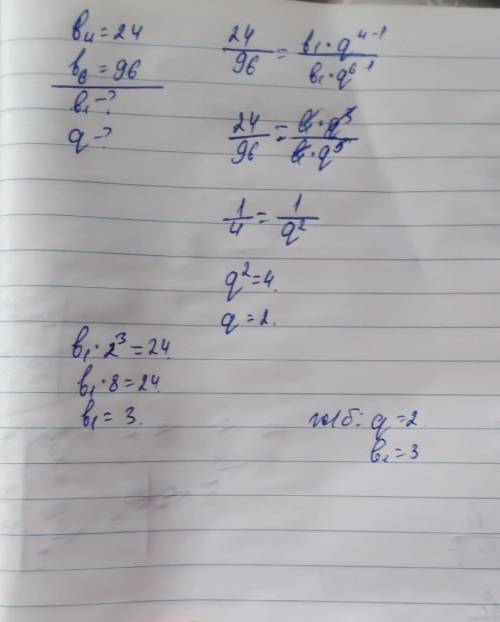 b₄ = 24
b₆ = 96
b₁ - ?
q - ?
24/96 = b₁ · q⁴⁻¹ / b₁ · q⁶⁻¹
24/96 = b₁ · q³ / b₁ · q⁵
1/4 = 1/q²
q² = 4.
q = 2.
b₁ · 2³ = 24
b₁ · 8 = 24.
b₁ = 3.
q = 2
b₁ = 3